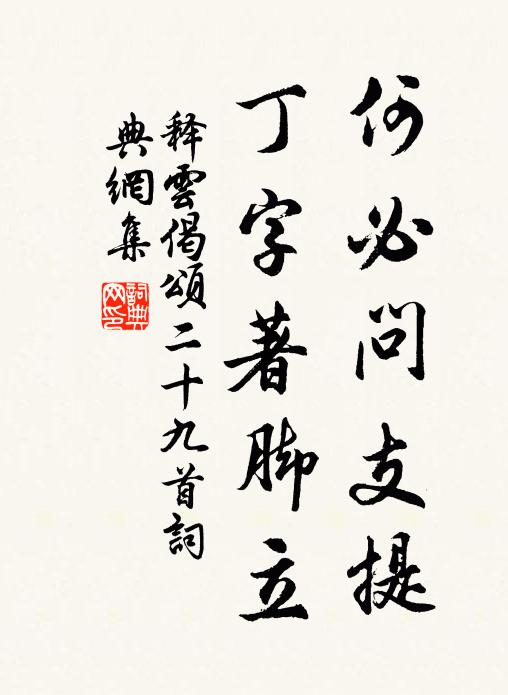 何必問支提
丁字著脚立
释雲偈頌二十九首詞
典網集
詞典
网印